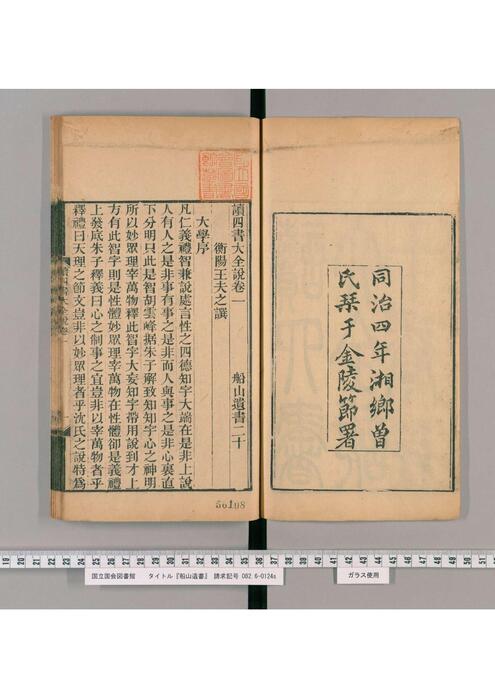 同治四年湘鄉曾
氏琹于金陵節署
讀四書大全說卷一
船山遺書二十
衡陽王夫之譔
大學序
凡仁義禮智兼說處言性之四德知字大端在是非上說
人有人之是非事有事之是非而人與事之是非心裏直
下分明只此是智胡雲峰據朱子解致知知字心之神明
所以妙眾理宰萬物釋此智字大妄知字帶用說到才上
方有此智字則是性體妙眾理宰萬物在性體卻是義禮
上發底朱子釋義曰心之制事之宜豈非以宰萬物者乎
釋禮曰天理之節文豈非以妙眾理者乎沈氏之說特爲
56108
19 20 21 22 23 24 25 26 27 28 29 30 31 32 33 34 35 36 37 38 39 40 41 42 43 44 45 46 47 48 49 50 51 52
国立国会図書館 タイトル『船山遺書』 請求記号 082.6-0124s
ガラス使用